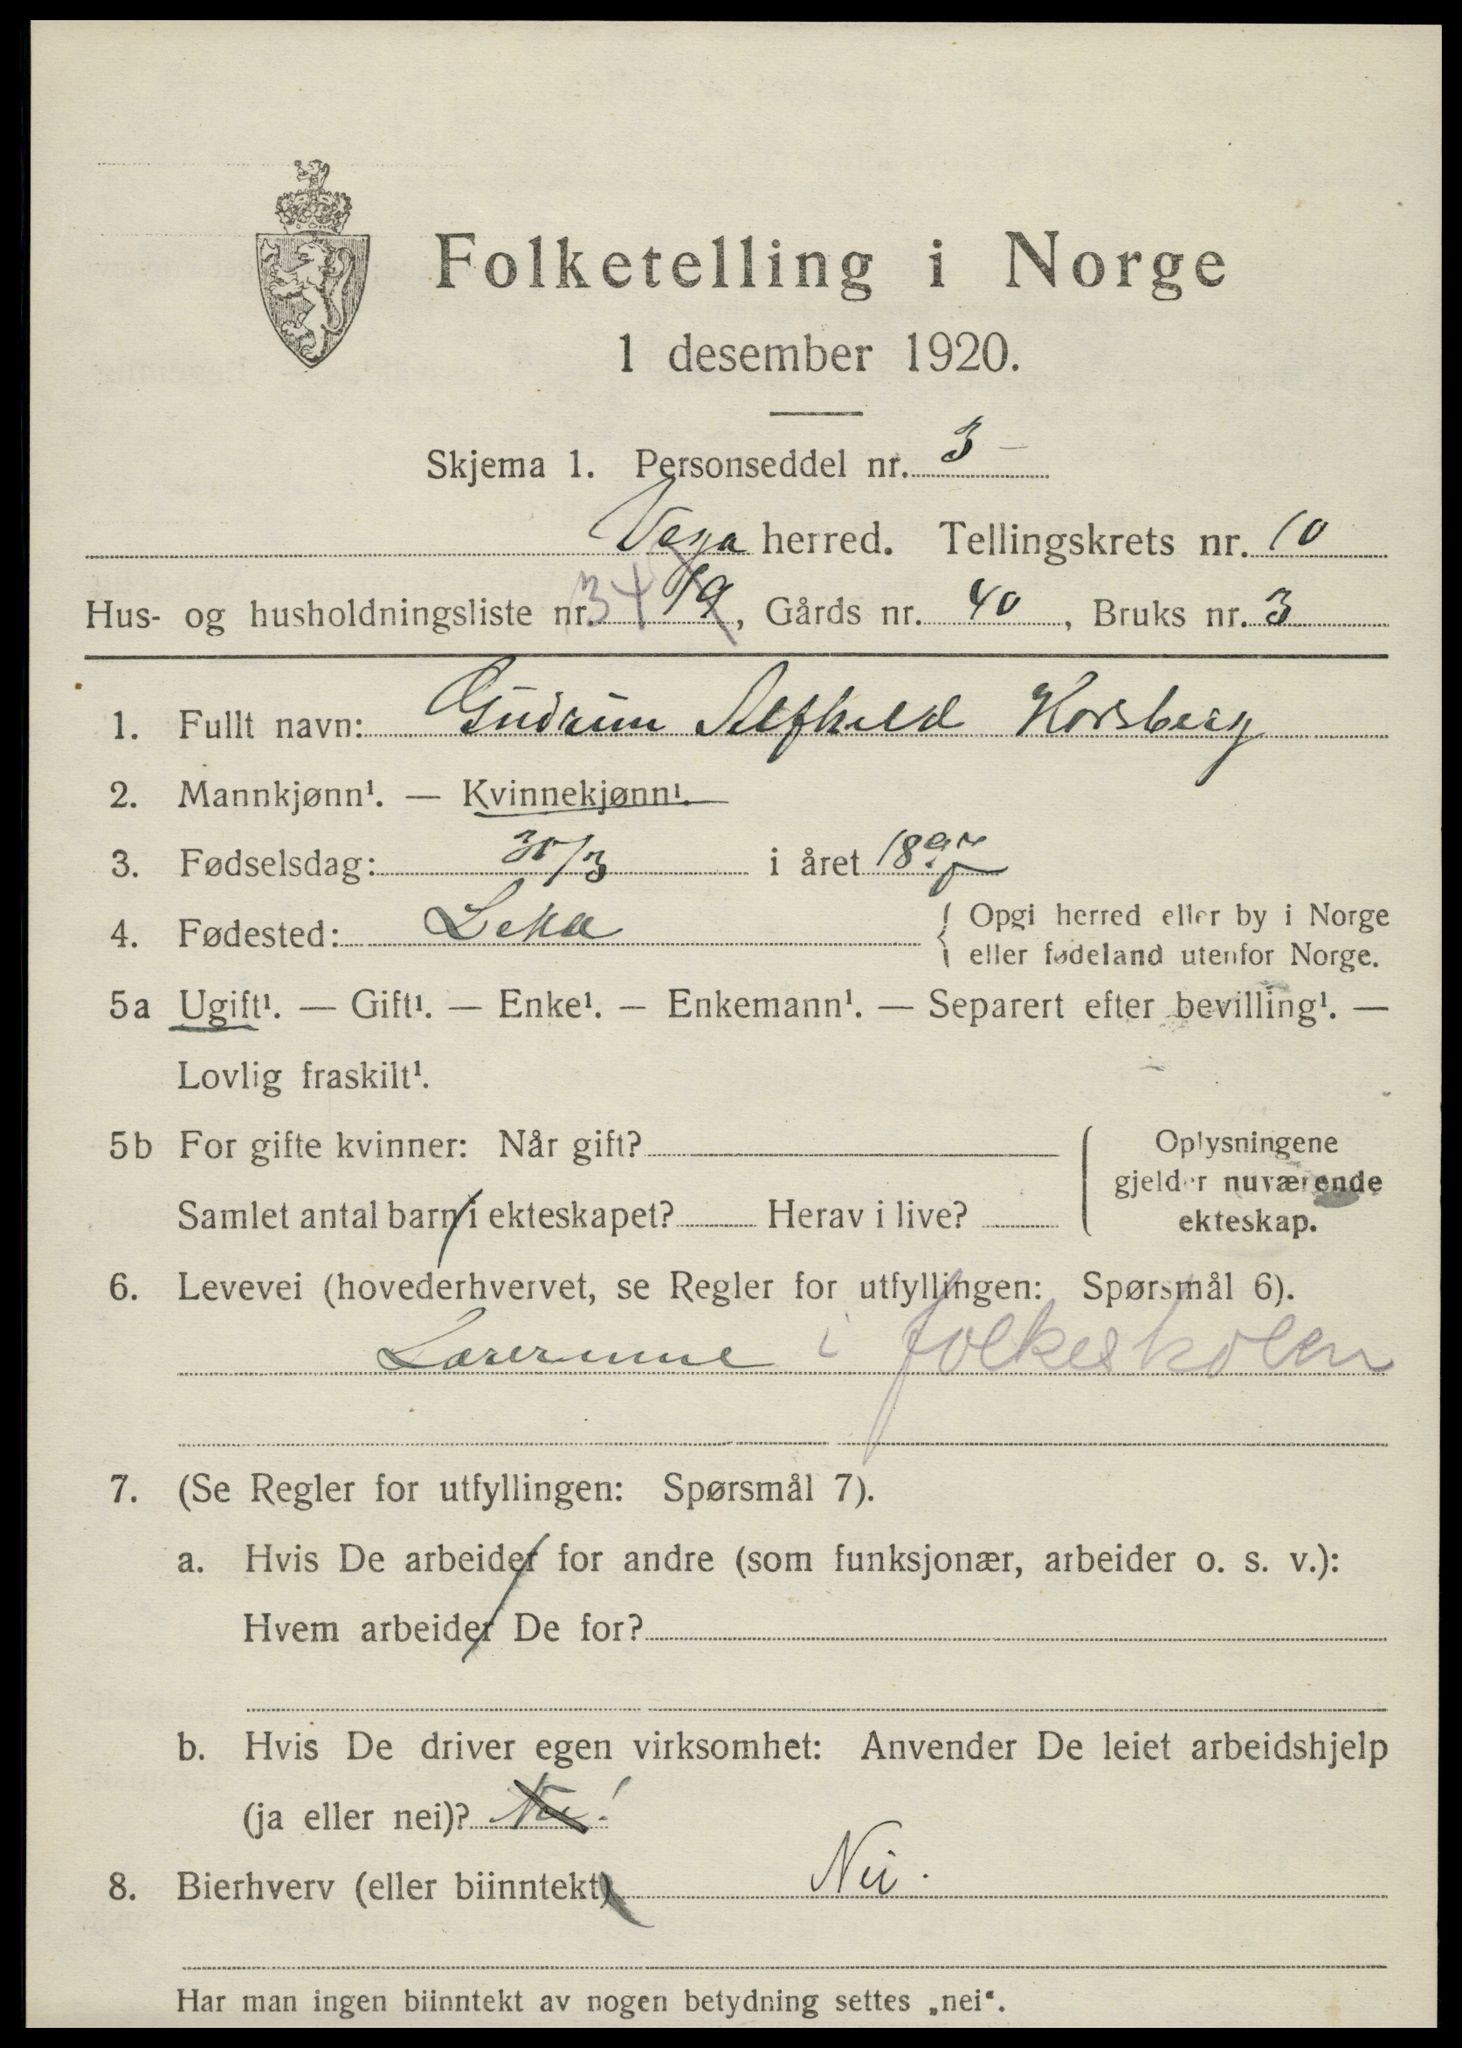 Folketelling i Norge
1 desember 1920.
Skjema 1. Personseddel nr. 3
Vega herred. Tellingskrets nr. 10
Hus- og husholdningsliste nr. 34 19, Gårds nr. 40, Bruks nr. 3
1. Fullt navn: Gudrun Alfhild Horsberg
2. Mannkjønn¹. — Kvinnekjønn¹.
3. Fødselsdag: 30/3 i året 1897
4. Fødested: Leka { Opgi herred eller by i Norge
eller fødeland utenfor Norge.
5a Ugift¹. — Gift¹. — Enke¹. — Enkemann¹. — Separert efter bevilling¹. —
Lovlig fraskilt¹.
5b For gifte kvinner: Når gift?
Samlet antal barn i ekteskapet? Herav i live?
{ Oplysningene
gjelder nuværende
ekteskap.
6. Levevei (hovederhvervet, se Regler for utfyllingen: Spørsmål 6).
Lærerinne i folkeskolen
7. (Se Regler for utfyllingen: Spørsmål 7).
a. Hvis De arbeider for andre (som funksjonær, arbeider o. s. v.):
Hvem arbeider De for?
b. Hvis De driver egen virksomhet: Anvender De leiet arbeidshjelp
(ja eller nei)? Nei!
8. Bierhverv (eller biinntekt) Nei.
Har man ingen biinntekt av nogen betydning settes „nei“.